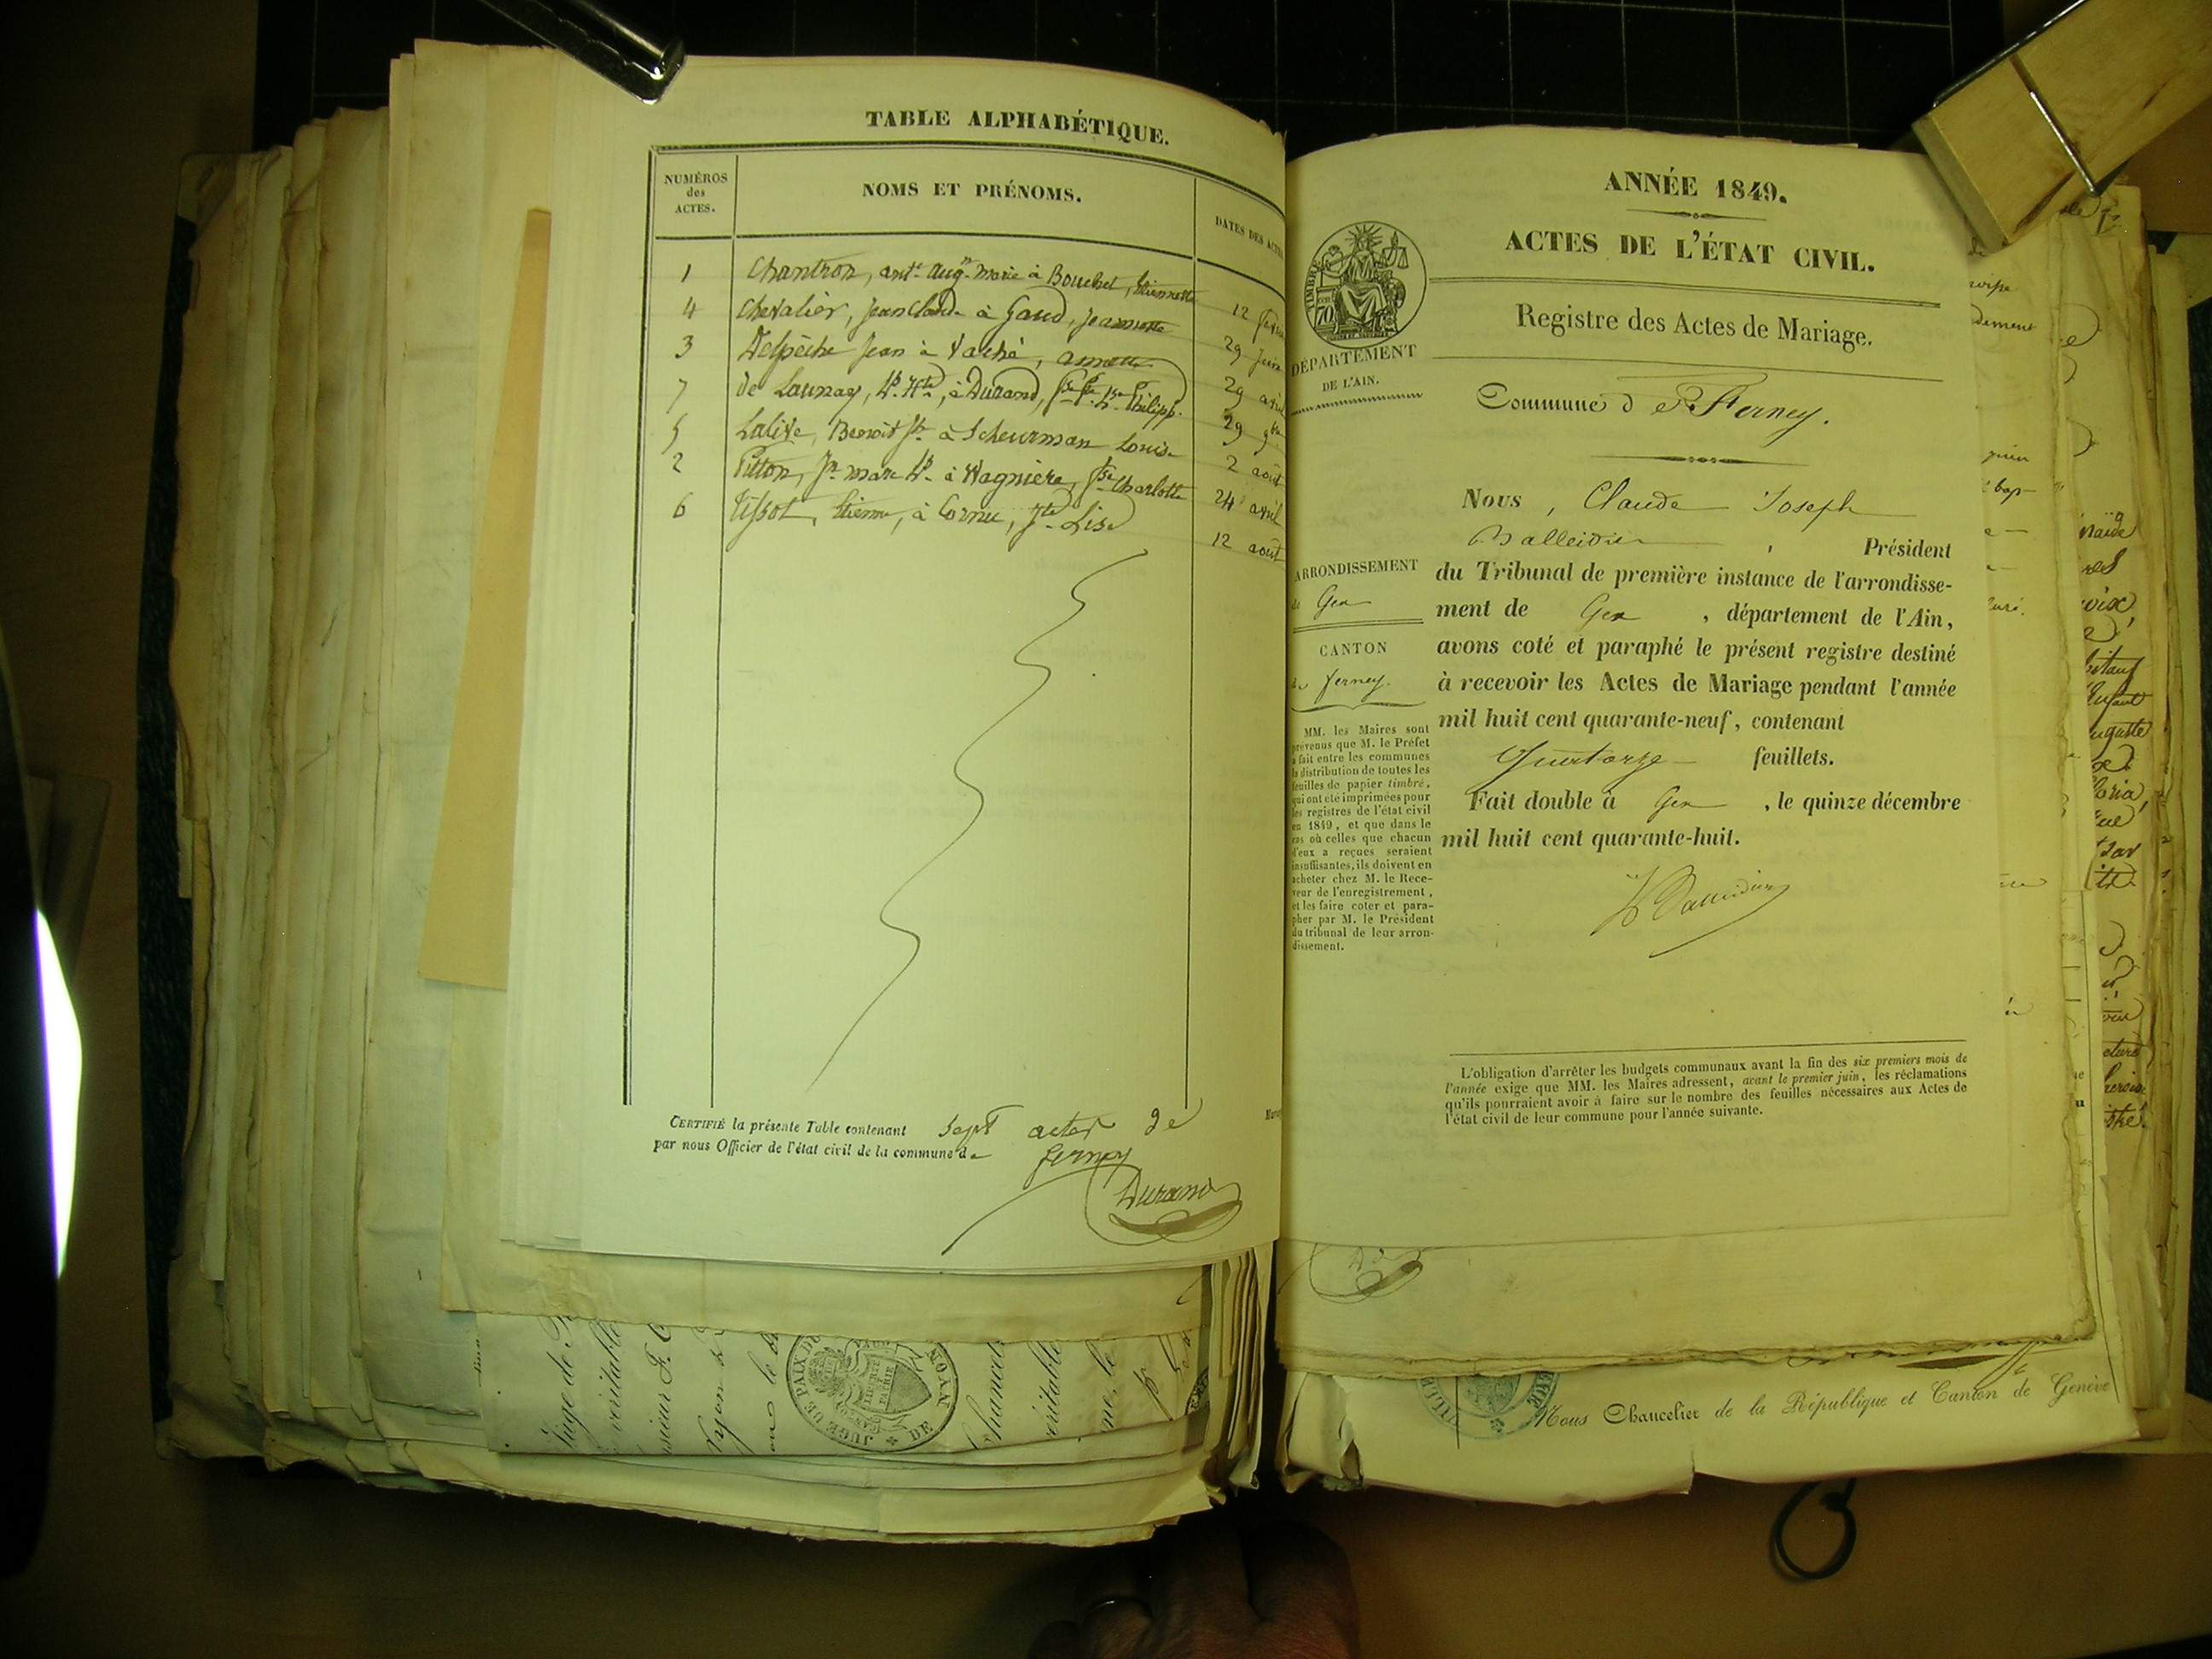 TABLE ALPHABÉTIQUE.
NUMÉROS
des
ACTES.
NOMS ET PRÉNOMS.
DATES DES ACTES
1 Chantron, ant. aug. marie à Bouchet, Etiennette 12
4 Chevalier, Jean Claude à Gaud, Jeannette 29 Juin
3 Delpèche Jean à Vaché, 29 avril
7 de Launay, à Durand, Philipp. 29 9bre
5 Lalive, Benoit à Scheurman Louise 2 août
2 Pitton, Jn marc à Wagnière, Charlotte 24 avril
6 Tissot, Etienne, à Cornu, Lise 12 août
CERTIFIÉ la présente Table contenant sept actes de
par nous Officier de l'état civil de la commune de ferney
Durand
ANNÉE 1849.
ACTES DE L'ÉTAT CIVIL.
TIMBRE
70
DÉPARTEMENT
DE L'AIN.
Registre des Actes de Mariage.
Commune de Ferney.
Nous, Claude Joseph
Balleidier, Président
du Tribunal de première instance de l'arrondisse-
ment de Gex, département de l'Ain,
avons coté et paraphé le présent registre destiné
à recevoir les Actes de Mariage pendant l'année
mil huit cent quarante-neuf, contenant
Quatorze feuillets.
Fait double à Gex, le quinze décembre
mil huit cent quarante-huit.
ARRONDISSEMENT
de Gex
CANTON
de ferney.
MM. les Maires sont
prévenus que M. le Préfet
a fait entre les communes
la distribution de toutes les
feuilles de papier timbré,
qui ont été imprimées pour
les registres de l'état civil
en 1849, et que dans le
cas où celles que chacun
d'eux a reçues seraient
insuffisantes, ils doivent en
acheter chez M. le Rece-
veur de l'enregistrement,
et les faire coter et para-
pher par M. le Président
du tribunal de leur arron-
dissement.
L'obligation d'arrêter les budgets communaux avant la fin des six premiers mois de
l'année exige que MM. les Maires adressent, avant le premier juin, les réclamations
qu'ils pourraient avoir à faire sur le nombre des feuilles nécessaires aux Actes de
l'état civil de leur commune pour l'année suivante.
JUGE DE PAIX DU
DE NYON
LIBERTÉ
PATRIE
Nous Chancelier de la République et Canton de Genève